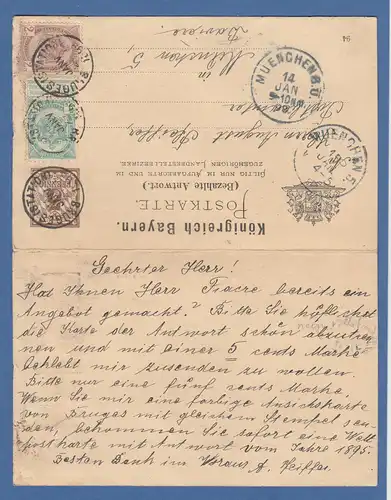 Königreich Bayern.
POSTKARTE.
(Bezahlte Antwort.)
GILTIG NUR IM AUFGABEORTE UND IM
ZUGEHÖRIGEN LANDBESTELLBEZIRKE.
Herrn August Pfeiffer,
München 5,
Bavière
94
MUENCHEN
14
JAN
MUENCHEN 5.
BRUGES (STATION)
Geehrter Herr!
Hat Ihnen Herr Fiacre bereits ein
Angebot gemacht? Bitte Sie höflichst
die Karte der Antwort schön abzutren-
nen und mit einer 5 cents Marke
beklebt mir zusenden zu wollen.
Bitte nur eine fünf cents Marke.
Wenn Sie mir eine farbige Ansichtskarte
von Bruges mit gleichem Stempel sen-
den, bekommen Sie sofort eine Welt-
postkarte mit Antwort vom Jahre 1895.
Besten Dank im Voraus A. Pfeiffer